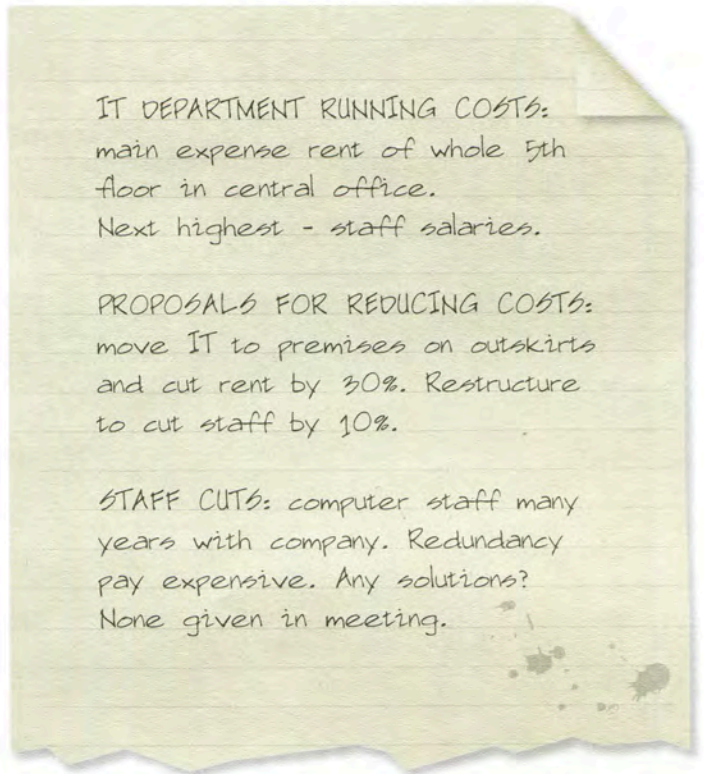 IT DEPARTMENT RUNNING COSTS:
main expense rent of whole 5th
floor in central office.
Next highest - staff salaries.
PROPOSALS FOR REDUCING COSTS:
move IT to premises on outskirts
and cut rent by 30%. Restructure
to cut staff by 10%.
STAFF CUTS: computer staff many
years with company. Redundancy
pay expensive. Any solutions?
None given in meeting.